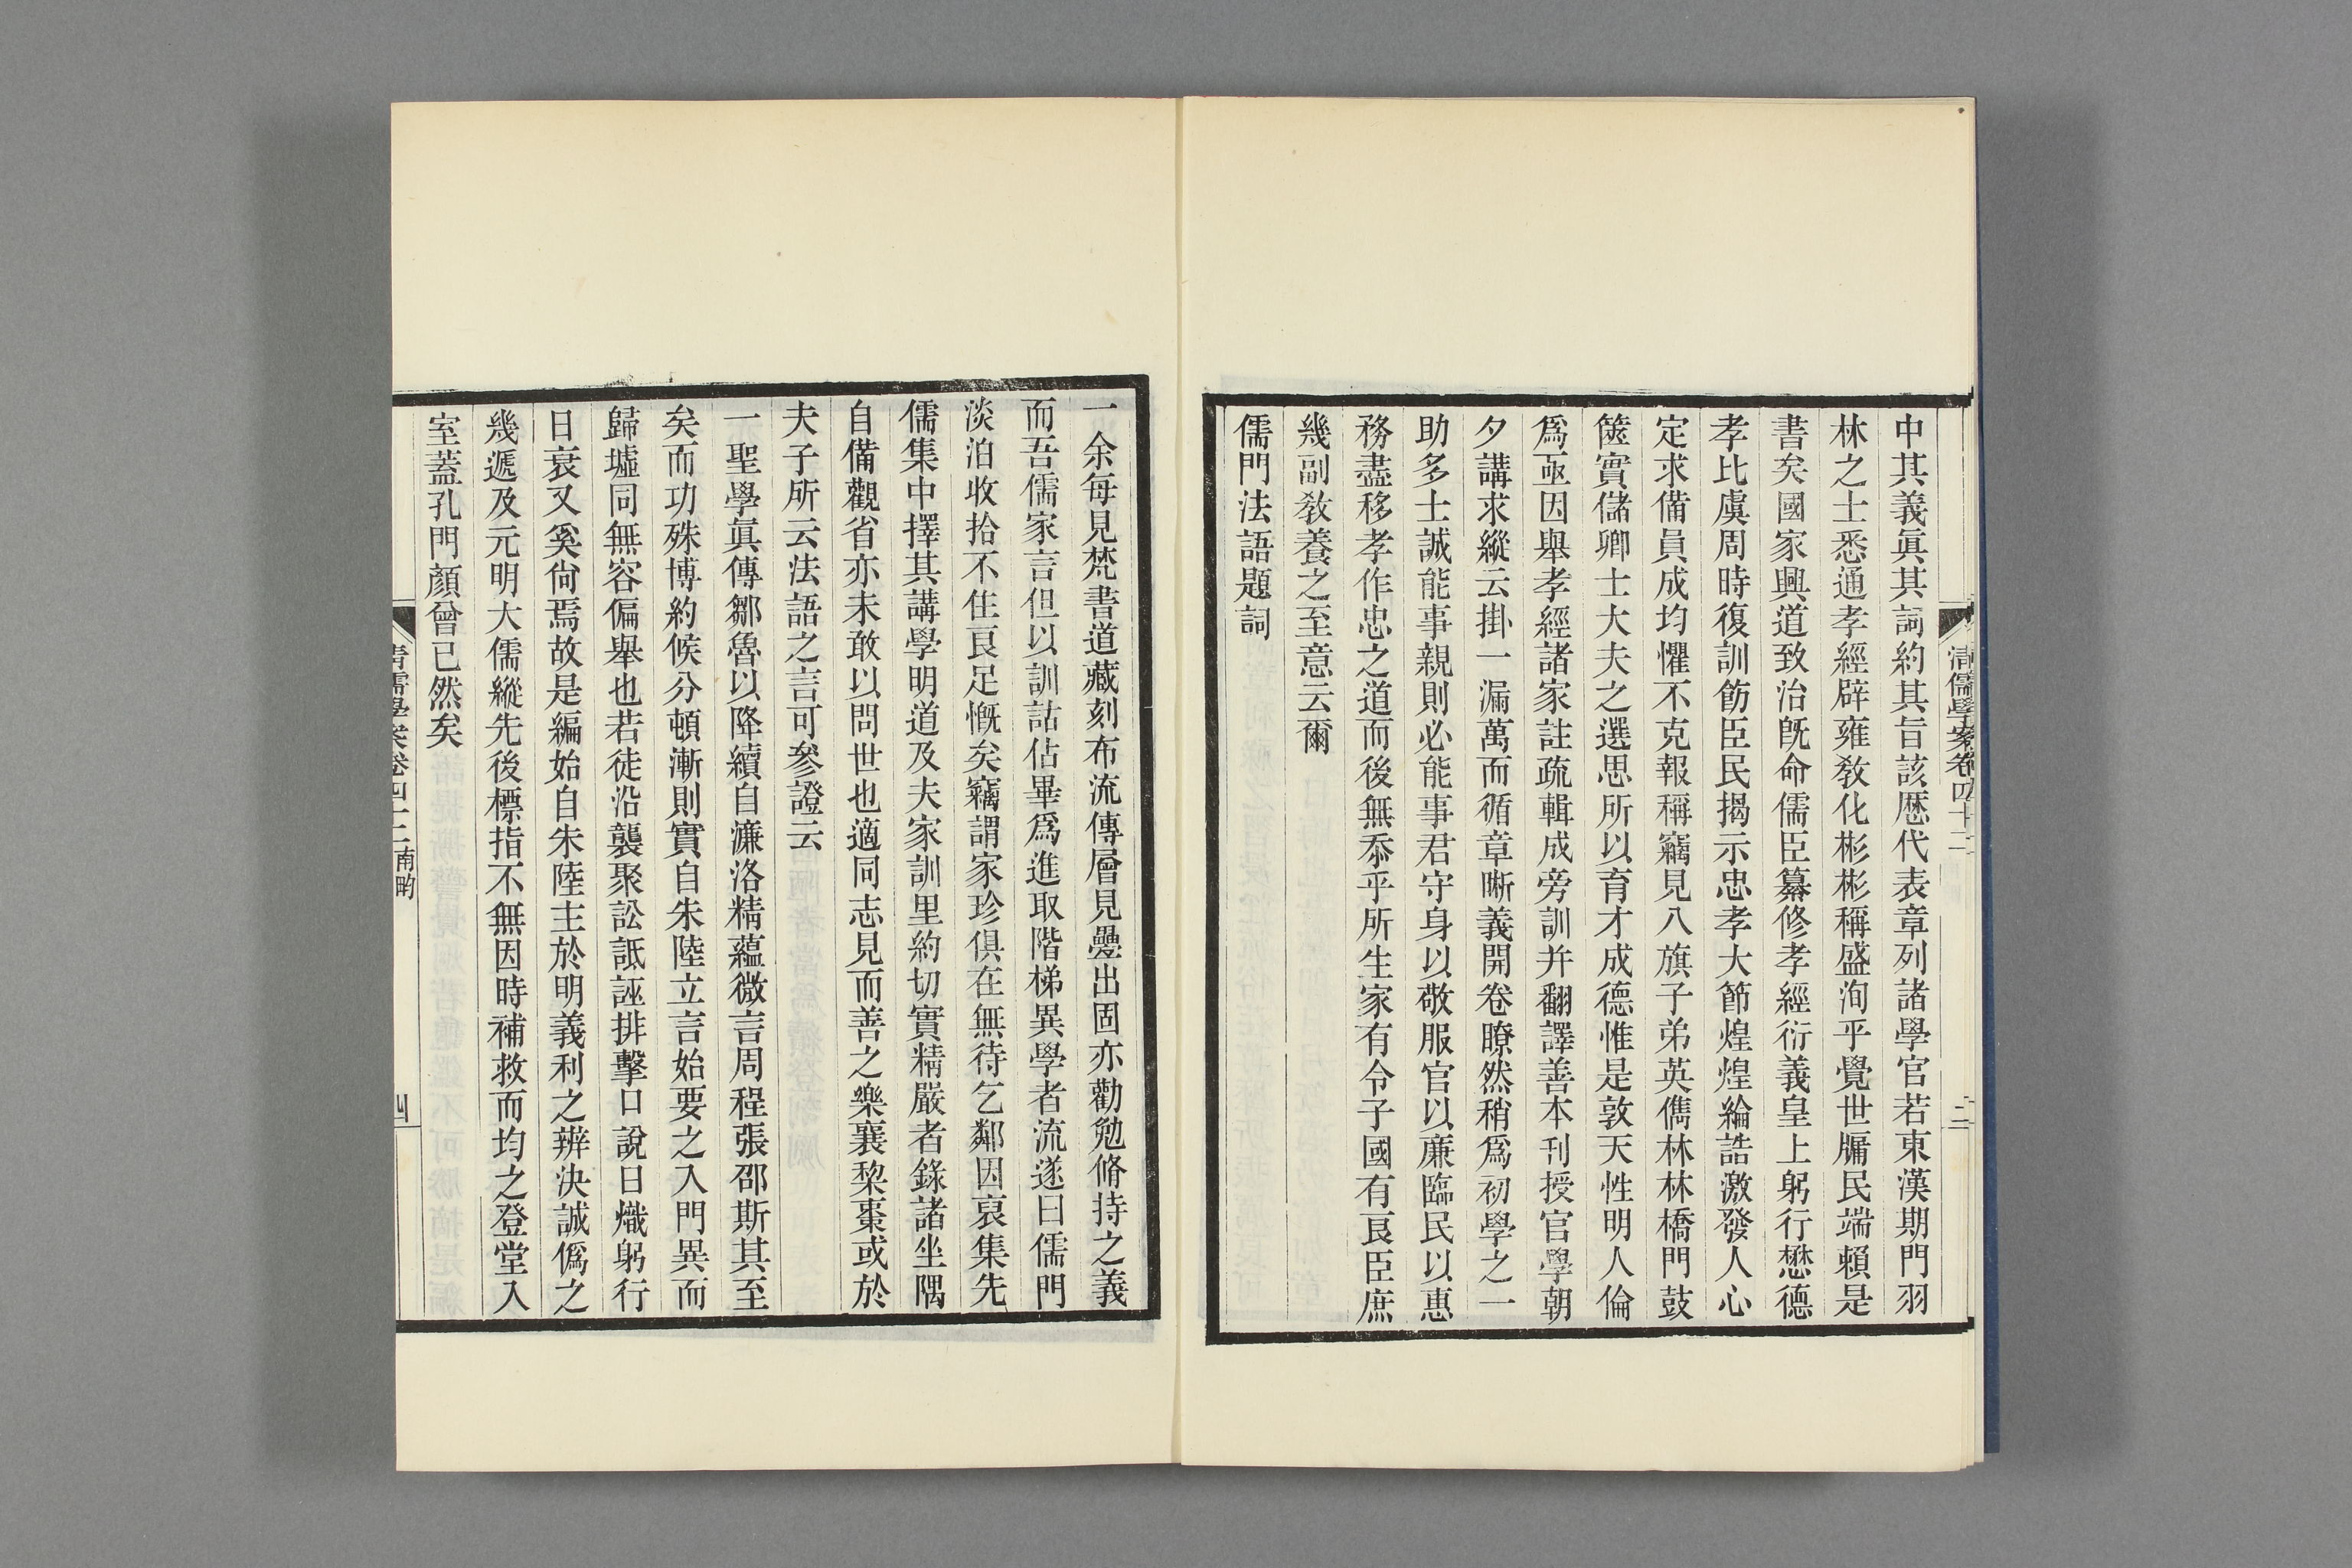 中其義眞其詞約其旨該歷代表章列諸學官若東漢期門羽
林之士悉通孝經辟雍敎化彬彬稱盛洵乎覺世牖民端賴是
書矣國家興道致治旣命儒臣纂修孝經衍義皇上躬行懋德
孝比虞周時復訓飭臣民揭示忠孝大節煌煌綸誥激發人心
定求備員成均懼不克報稱竊見八旗子弟英儁林林橋門鼓
篋實儲卿士大夫之選思所以育才成德惟是敦天性明人倫
爲亟因舉孝經諸家註疏輯成旁訓幷翻譯善本刊授官學朝
夕講求縱云掛一漏萬而循章晰義開卷瞭然稍爲初學之一
助多士誠能事親則必能事君守身以敬服官以廉臨民以惠
務盡移孝作忠之道而後無忝乎所生家有令子國有良臣庶
幾副敎養之至意云爾
儒門法語題詞
清儒學案卷四十二
三
一余每見梵書道藏刻布流傳層見疊出固亦勸勉脩持之義
而吾儒家言但以訓詁佔畢爲進取階梯異學者流遂曰儒門
淡泊收拾不住良足慨矣竊謂家珍俱在無待乞鄰因裒集先
儒集中擇其講學明道及夫家訓里約切實精嚴者錄諸坐隅
自備觀省亦未敢以問世也適同志見而善之樂襄棃棗或於
夫子所云法語之言可參證云
一聖學眞傳鄒魯以降續自濂洛精蘊微言周程張邵斯其至
矣而功殊博約候分頓漸則實自朱陸立言始要之入門異而
歸墟同無容偏舉也若徒沿襲聚訟詆誣排擊口說日熾躬行
日衰又奚尙焉故是編始自朱陸主於明義利之辨決誠僞之
幾遞及元明大儒縱先後標指不無因時補救而均之登堂入
室蓋孔門顏曾已然矣
清儒學案卷四十二 南畇
四